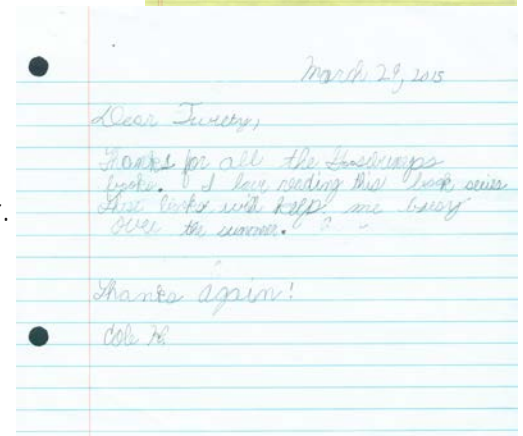 March 29, 2015
Dear Tweetzy,
Thanks for all the Goosebumps
books. I love reading this book series
books will help me busy
over the summer.
Thanks again!
Cole